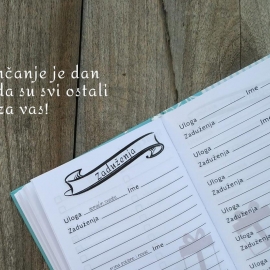 nčanje je dan
da su svi ostali
za vas!
Zaduženja
Ime
Uloga
Zaduženja
Ime
Uloga
Zaduženja
Ime
Uloga
Zaduženja
Ime
Uloga
Zaduženja
Ime
Uloga
Zaduženja